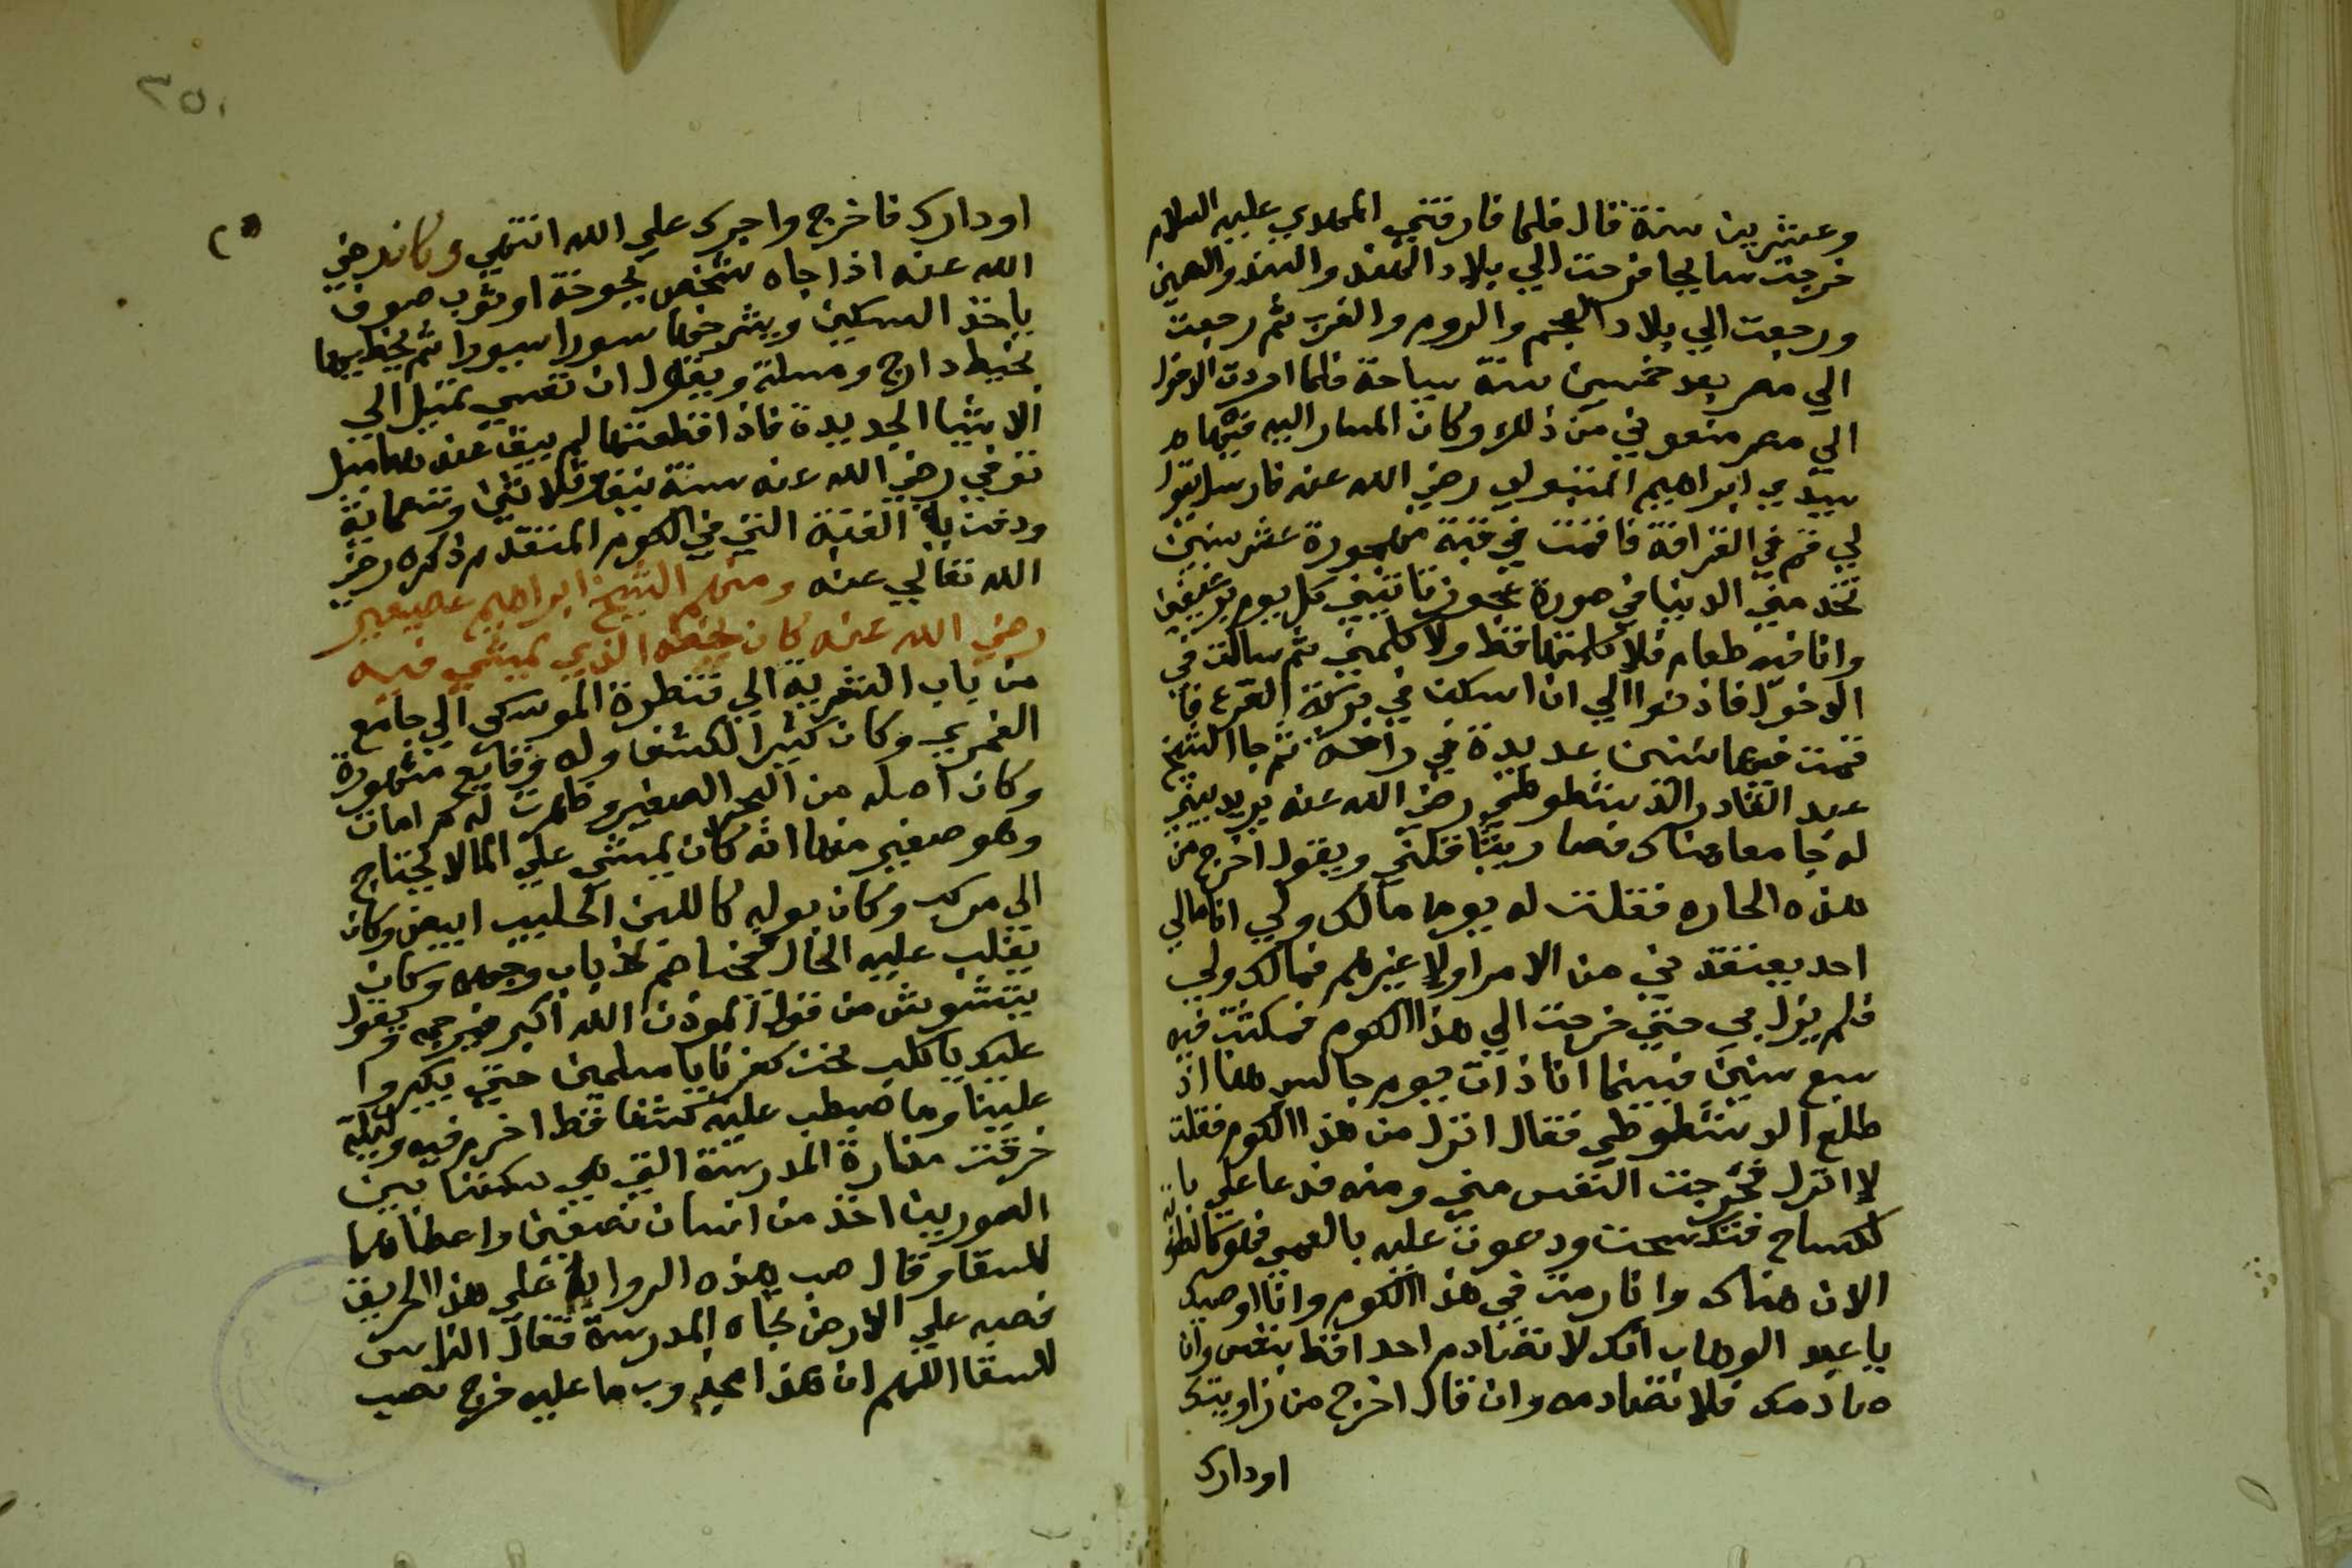 وعشرين سنة قال فلما فارقني المهدي عليه السلام
خرجت سايحا فرحت الي بلاد الهند والسند والصين
ورجعت الي بلاد العجم والروم والغرب ثم رجعت
الي مصر بعد خمسين سنة سياحة فلما اردت الدخول
الي مصر منعوني من ذلك وكان المشار اليه فيها
سيدي ابراهيم المتبولي رضي الله عنه فارسل يقول
لي قم في القرافة فاقمت في قبة مهجورة عشر سنين
تخدمني الدنيا في صورة عجوز تاتيني كل يوم برغيفين
وانا فيه طعام فلا كلمتها قط ولا كلمتني ثم سالت في
الدخول فاذنوا الي ان اسكن في بركة القرع فا
قمت فيها سنين عديدة في ثم جا الشيخ
عبد القادر الدشطوطي رضي الله عنه يريد يبني
له جامعا هناك فصار يتناقلني ويقول اخرج من
هذه الحاره فقلت له يوما مالك ولي انا مالي
احد يعتقد في من الامرا ولا غيرهم فمالك ولي
فلم يزل بي حتي خرجت الي هذا الكوم فمكثت فيه
سبع سنين فبينما انا ذات يوم جالس هنا اذ
طلع الدشطوطي فقال انزل من هذا الكوم فقلت
لا انزل فخرجت النفس مني ومنه فدعا علي با
لكساح فتكسحت ودعوت عليه بالعمي فعمي
الان هناك وانا رمة في هذا الكوم وانا اوصيك
يا عبد الوهاب انك لا تصادم احدا قط بنفس وان
صادمك فلا تصادمه وان قال اخرج من زاويتك
اودارك
٢٥٠
اودارك فاخرج واجرك علي الله انتهي وكان رضي
الله عنه اذا جاه شخص بجوخة او ثوب صوف
ياخذ السكين ويشرحها سيورا سيورا ثم يخيطها
بخيط دارج ومسلة ويقول ان نفسي تميل الي
الاشيا الجديدة فاذا قطعتها لم يبق عندها ميل
توفي رضي الله عنه سنة نيف وثلاثين وتسعماية
ودفن القبة التي في الكوم المتقدم ذكره رضي
الله تعالي عنه ومنهم الشيخ ابراهيم عصيفير
رضي الله عنه كان خطه الذي يمشي فيه
من باب الشعرية الي قنطرة الموسكي الي جامع
الغمري وكان كثير الكشف وله وقايع مشهورة
وكان اصله من البحر الصغير وظهرت له كرامات
وهو صغير منها انه كان يمشي علي الما لا يحتاج
الي مركب وكان بوله كاللبن الحليب ابيض وكان
يغلب عليه الحال فيخاصم ذباب وجهه وكان
يتشوش من قول الموذن الله اكبر فيرجمه ويقول
عليك يا كلب نحن كفرنا يا مسلمين حتي يكبروا
علينا وما ضبطت عليه كشفا قط اخرم فيه وليلة
خرقت منارة المدرسة التي هي سكننا بين
الصورين اخذ من انسان نصفين واعطاهما
للسقا وقال صب هذه الرواية علي هذا الحريق
فصبه علي الارض تجاه المدرسة فقال الناس
للسقا اللهم ان هذا مجذوب ما عليه حرج تصب